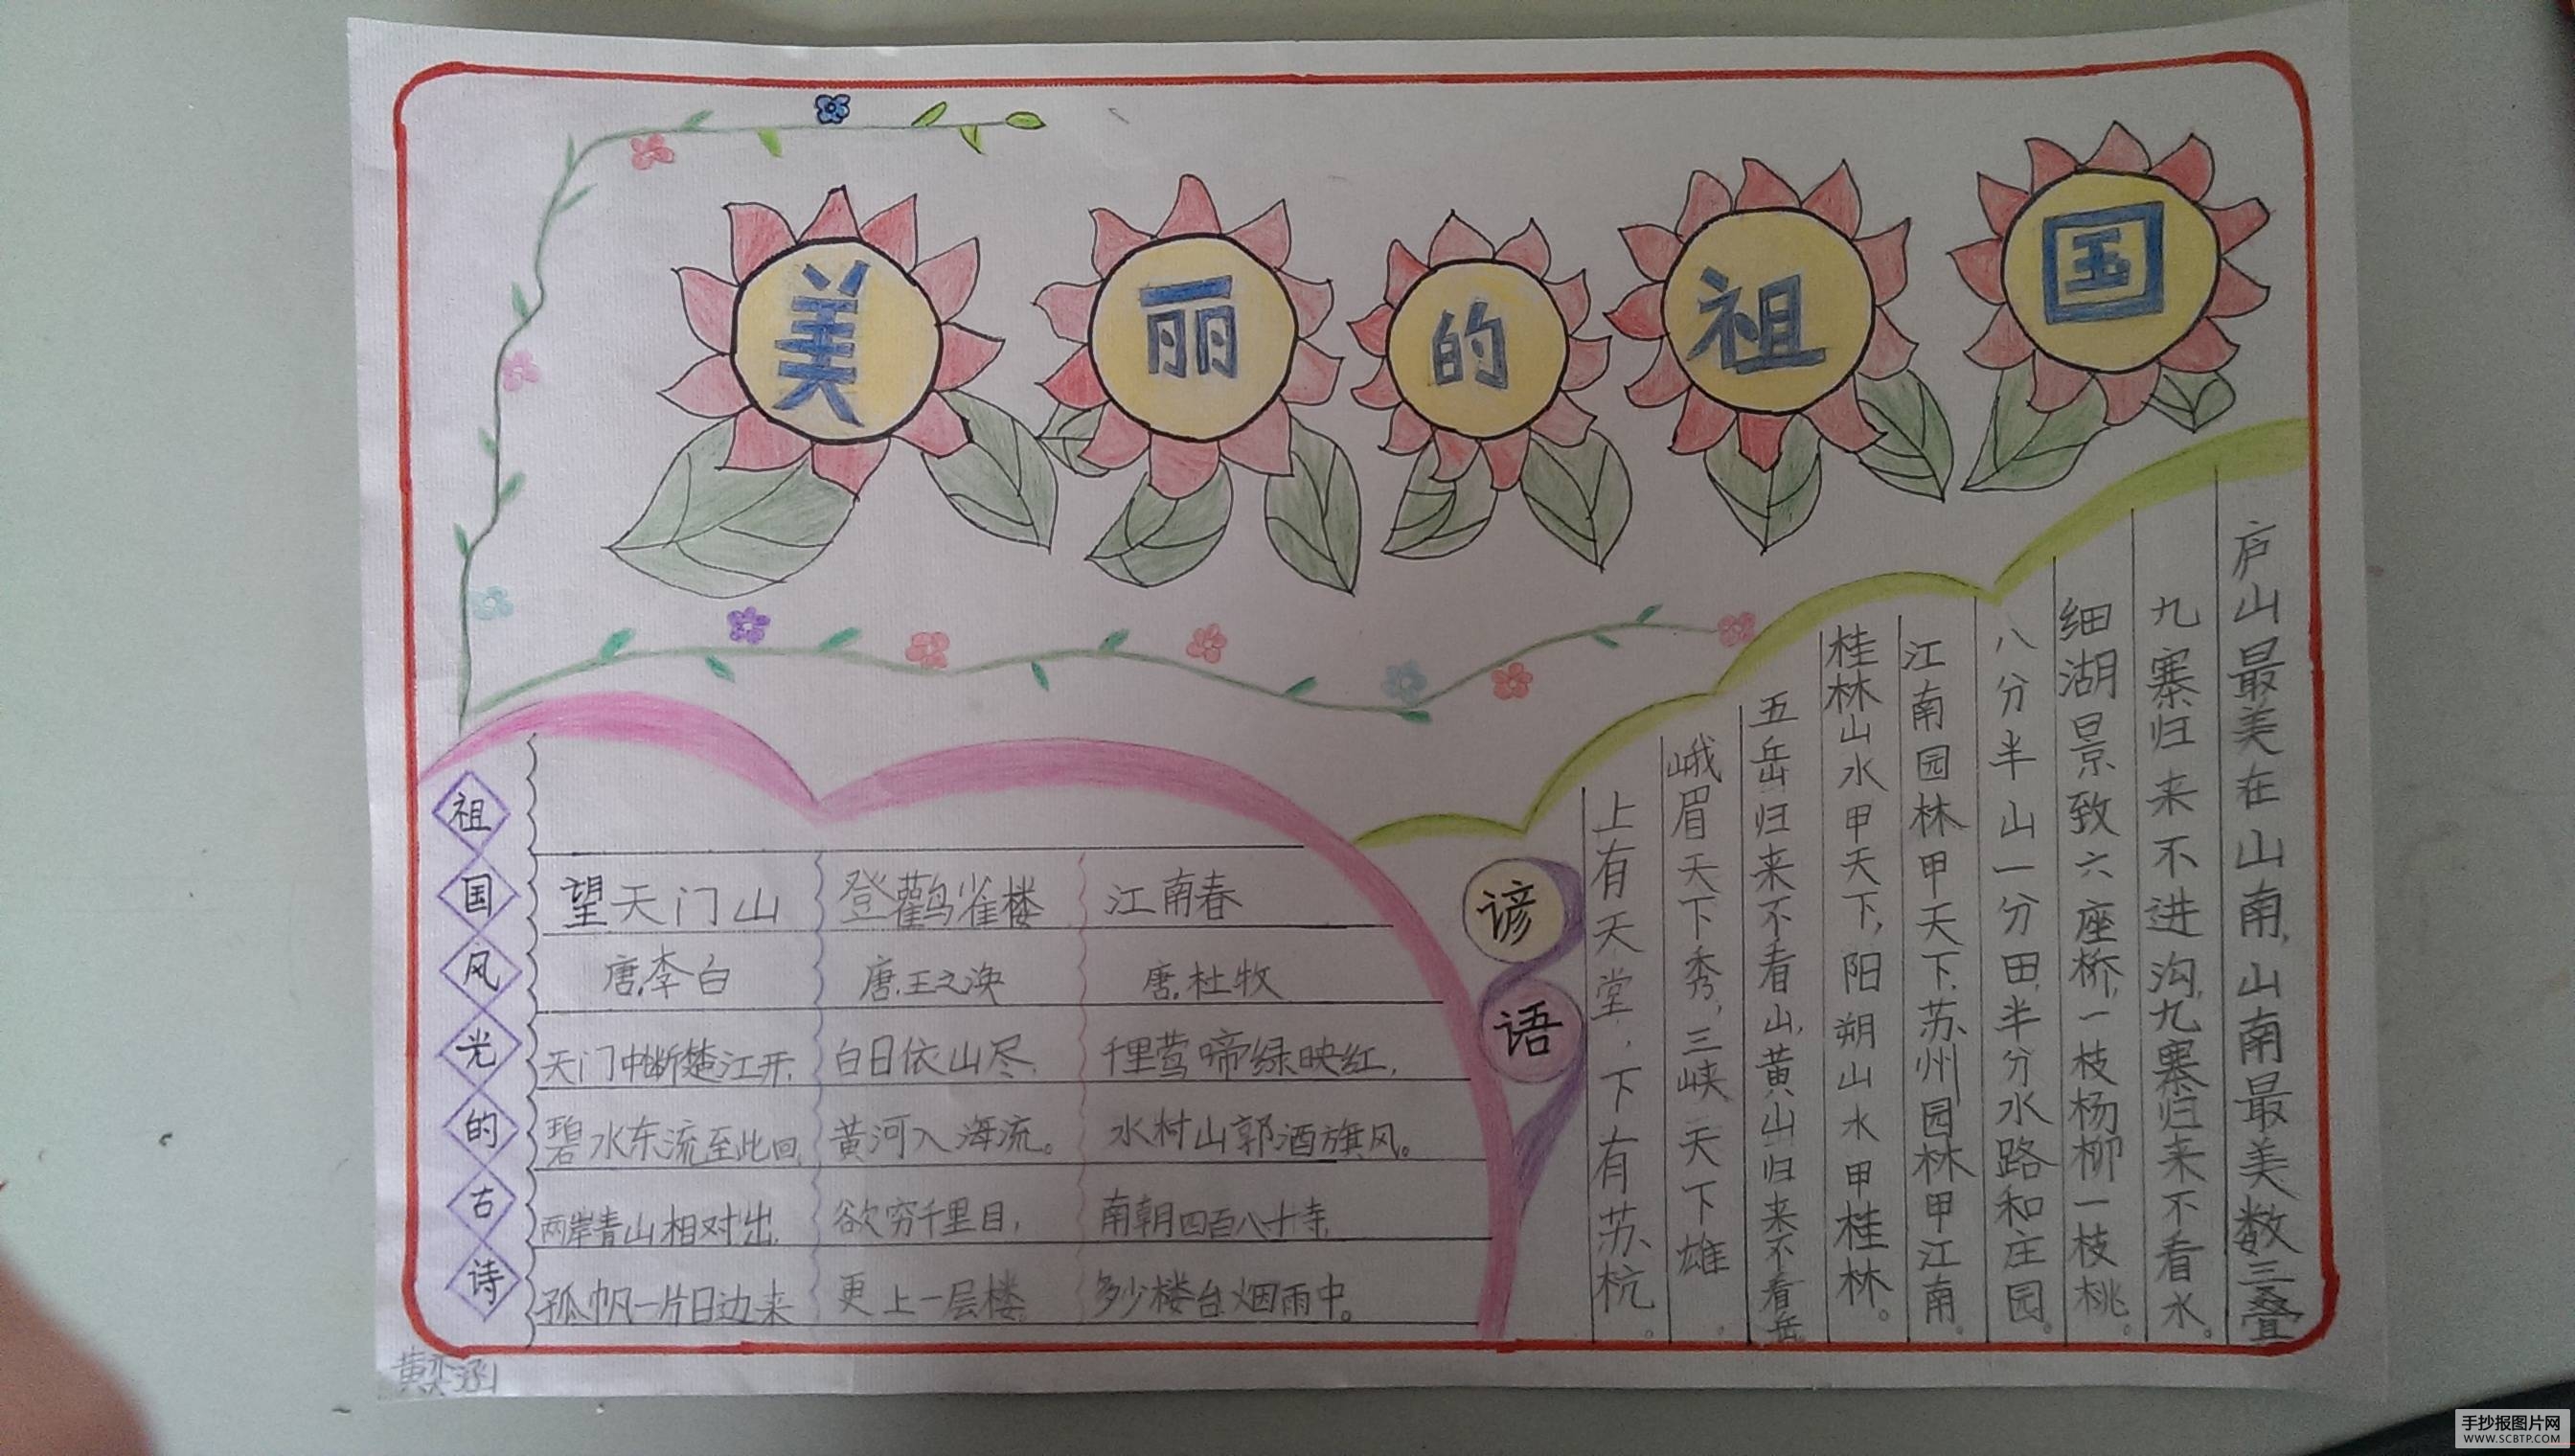 美丽的祖国
祖国风光的古诗
望天门山
唐.李白
天门中断楚江开,
碧水东流至此回,
两岸青山相对出,
孤帆一片日边来
登鹳雀楼
唐.王之涣
白日依山尽,
黄河入海流。
欲穷千里目,
更上一层楼.
江南春
唐.杜牧
千里莺啼绿映红,
水村山郭酒旗风。
南朝四百八十寺,
多少楼台烟雨中。
谚语
上有天堂,下有苏杭。
峨眉天下秀,三峡天下雄。
五岳归来不看山,黄山归来不看岳。
桂林山水甲天下,阳朔山水甲桂林。
江南园林甲天下,苏州园林甲江南。
八分半山一分田,半分水路和庄园。
细湖景致六座桥,一枝杨柳一枝桃。
九寨归来不进沟,九寨归来不看水。
庐山最美在山南,山南最美数三叠
黄奕涵
手抄报图片网
WWW.SCBTP.COM